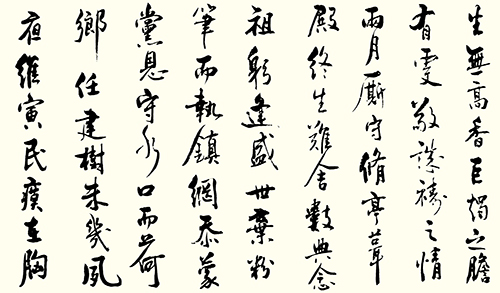 生無高香巨燭之瞻
有虔敬禱之情
兩月廝守脩亭葺
殿終生難舍數典念
祖躬逢盛世棄粉
筆而執鎮綱忝蒙
黨恩守水口而荷
鄉任建樹未幾夙
夜維寅民瘼在胸